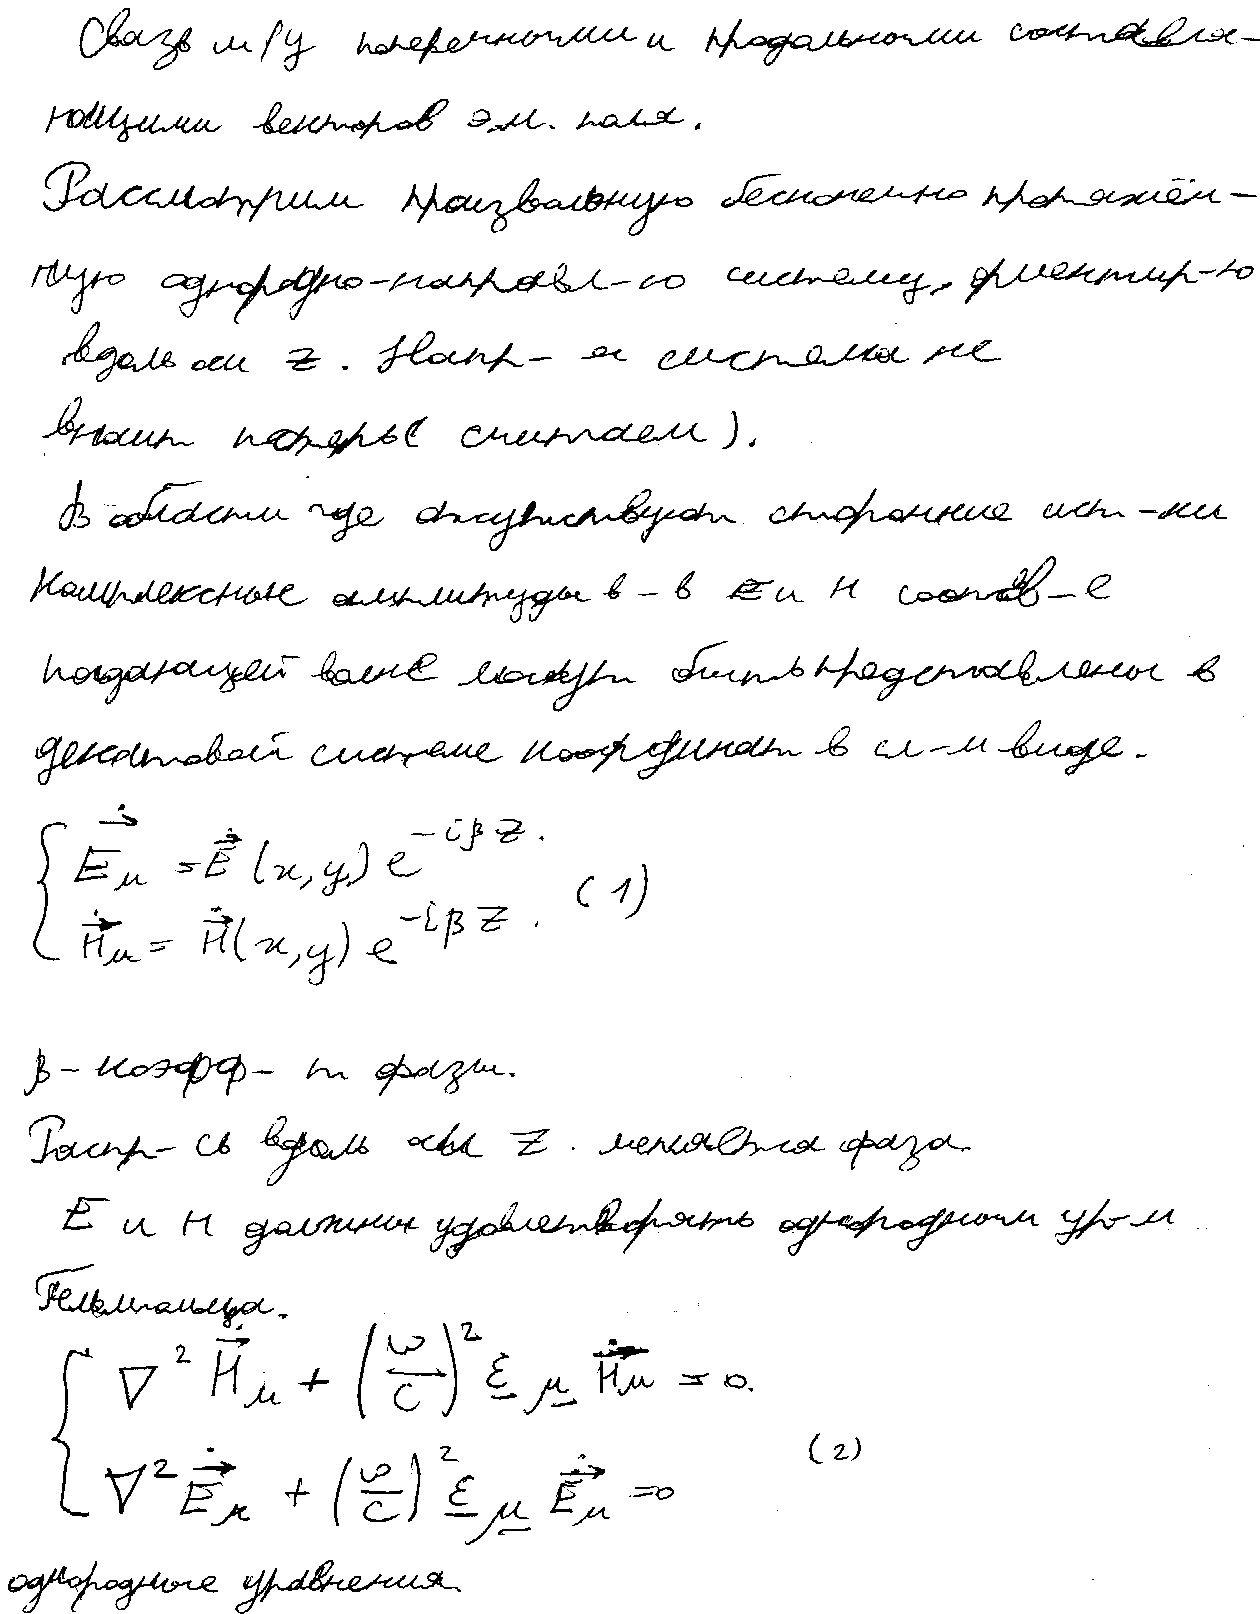 Связь м/у поперечными и продольными составля-
ющими векторов э.м. поля.
Рассмотрим произвольную бесконечно протяжён-
ную однородно-направл-ю систему, ориентир-ю
вдоль оси z. Напр-я система не
вносит потерь (считаем).
В области где отсутствуют сторонние ист-ки
Комплексные амплитуды в-в E и H соотв-е
падающей волне могут быть представлены в
декартовой системе координат в сл-м виде.
{ Ė⃗м = Ė⃗(x,y) e^{-iβz}.
{ Ḣ⃗м = Ḣ⃗(x,y) e^{-iβz}. (1)
β - коэфф-т фазы.
Распр-сь вдоль оси z. меняется фаза.
E и H должны удовлетворять однородным ур-м
Гельмгольца.
{ ∇² Ḣ⃗м + (ω/c)² ε μ Ḣ⃗м = 0.
{ ∇² Ė⃗м + (ω/c)² ε μ Ė⃗м = 0 (2)
однородные уравнения.